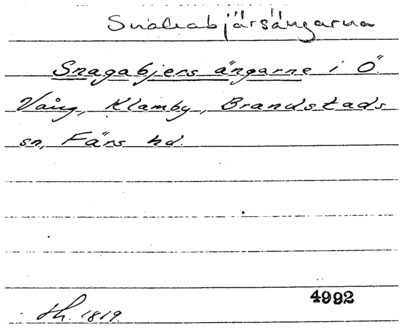 Snakabjärsängarna
Snagabjers ängarne i Ö.
Vång, Klamby, Brandstads
sn, Färs hd.
4992
th. 1819.